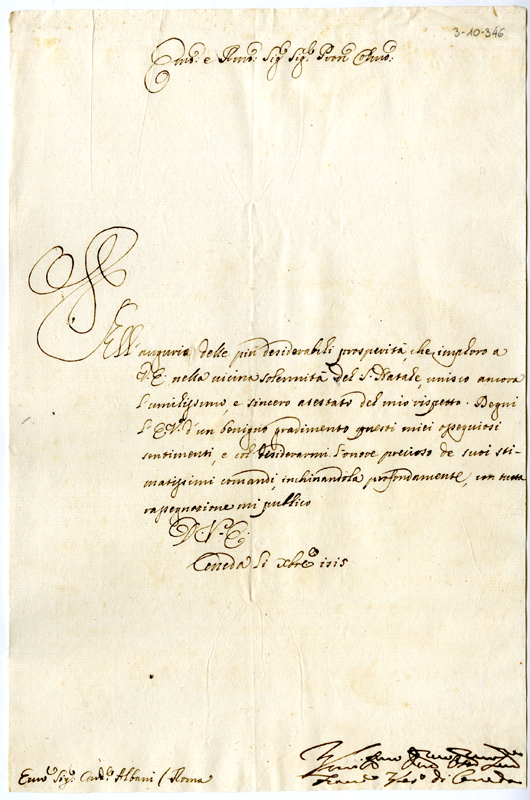 3-10-346
Em̄o: e Rm̄o: Sig.r Sig.r Pron Colmo:
All'augurio delle più desiderabili prosperità, che imploro a
V. E. nella vicina solennità del S. Natale, unisco ancora
l'umilissimo, e sincero attestato del mio rispetto. Degni
l'E.V. d'un benigno gradimento questi miei ossequiosi
sentimenti, e col desiderarmi l'onore precioso de suoi sti-
matissimi comandi, inchinandola profondamente, con tutta
rassegnazione mi publico
D. V. E.
Ceneda li Xbre 1715
Emo Sig.r Card.l Albani / Roma
di Ceneda